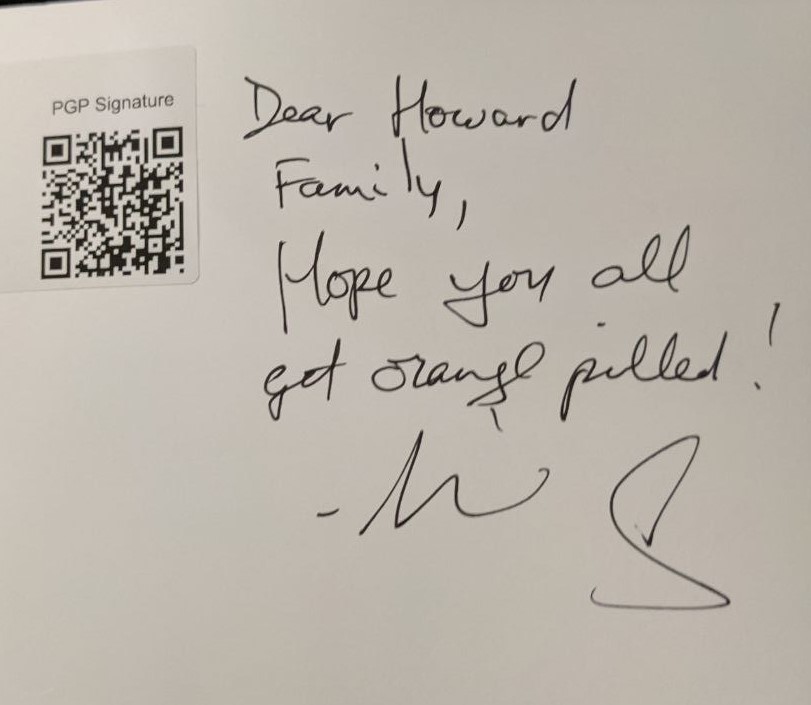 PGP Signature
Dear Howard
Family,
Hope you all
get orange pilled!